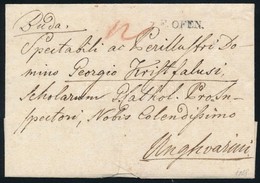 Buda.
OFEN.
Spectabili ac Perillustri Do-
mino Georgio Kristfalusi,
Scholarum Nobis Colendissimo
spectori, Nobis Colendissimo
Unghvarini